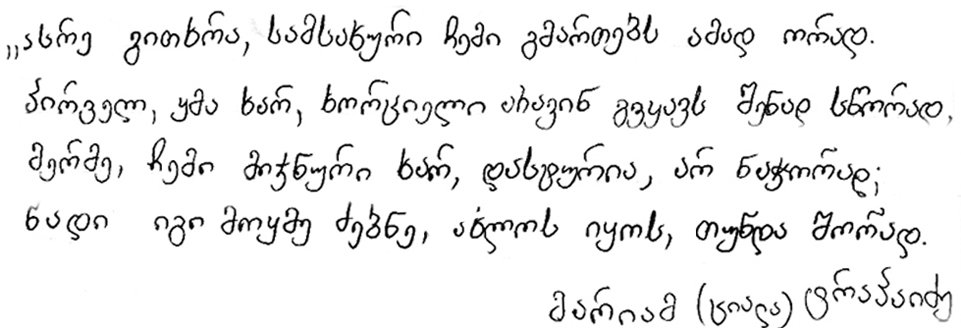 „ასრე გითხრა, სამსახური ჩემი გმართებს ამად ორად.
პირველ, ყმა ხარ, ხორციელი არავინ გვყავს შენად სწორად,
მერმე, ჩემი მიჯნური ხარ, დასტურია, არ ნაჭორად;
წადი იგი მოყმე ძებნე, ახლოს იყოს, თუნდა შორად.
მარიამ (ციალა) ფრაპაიძე